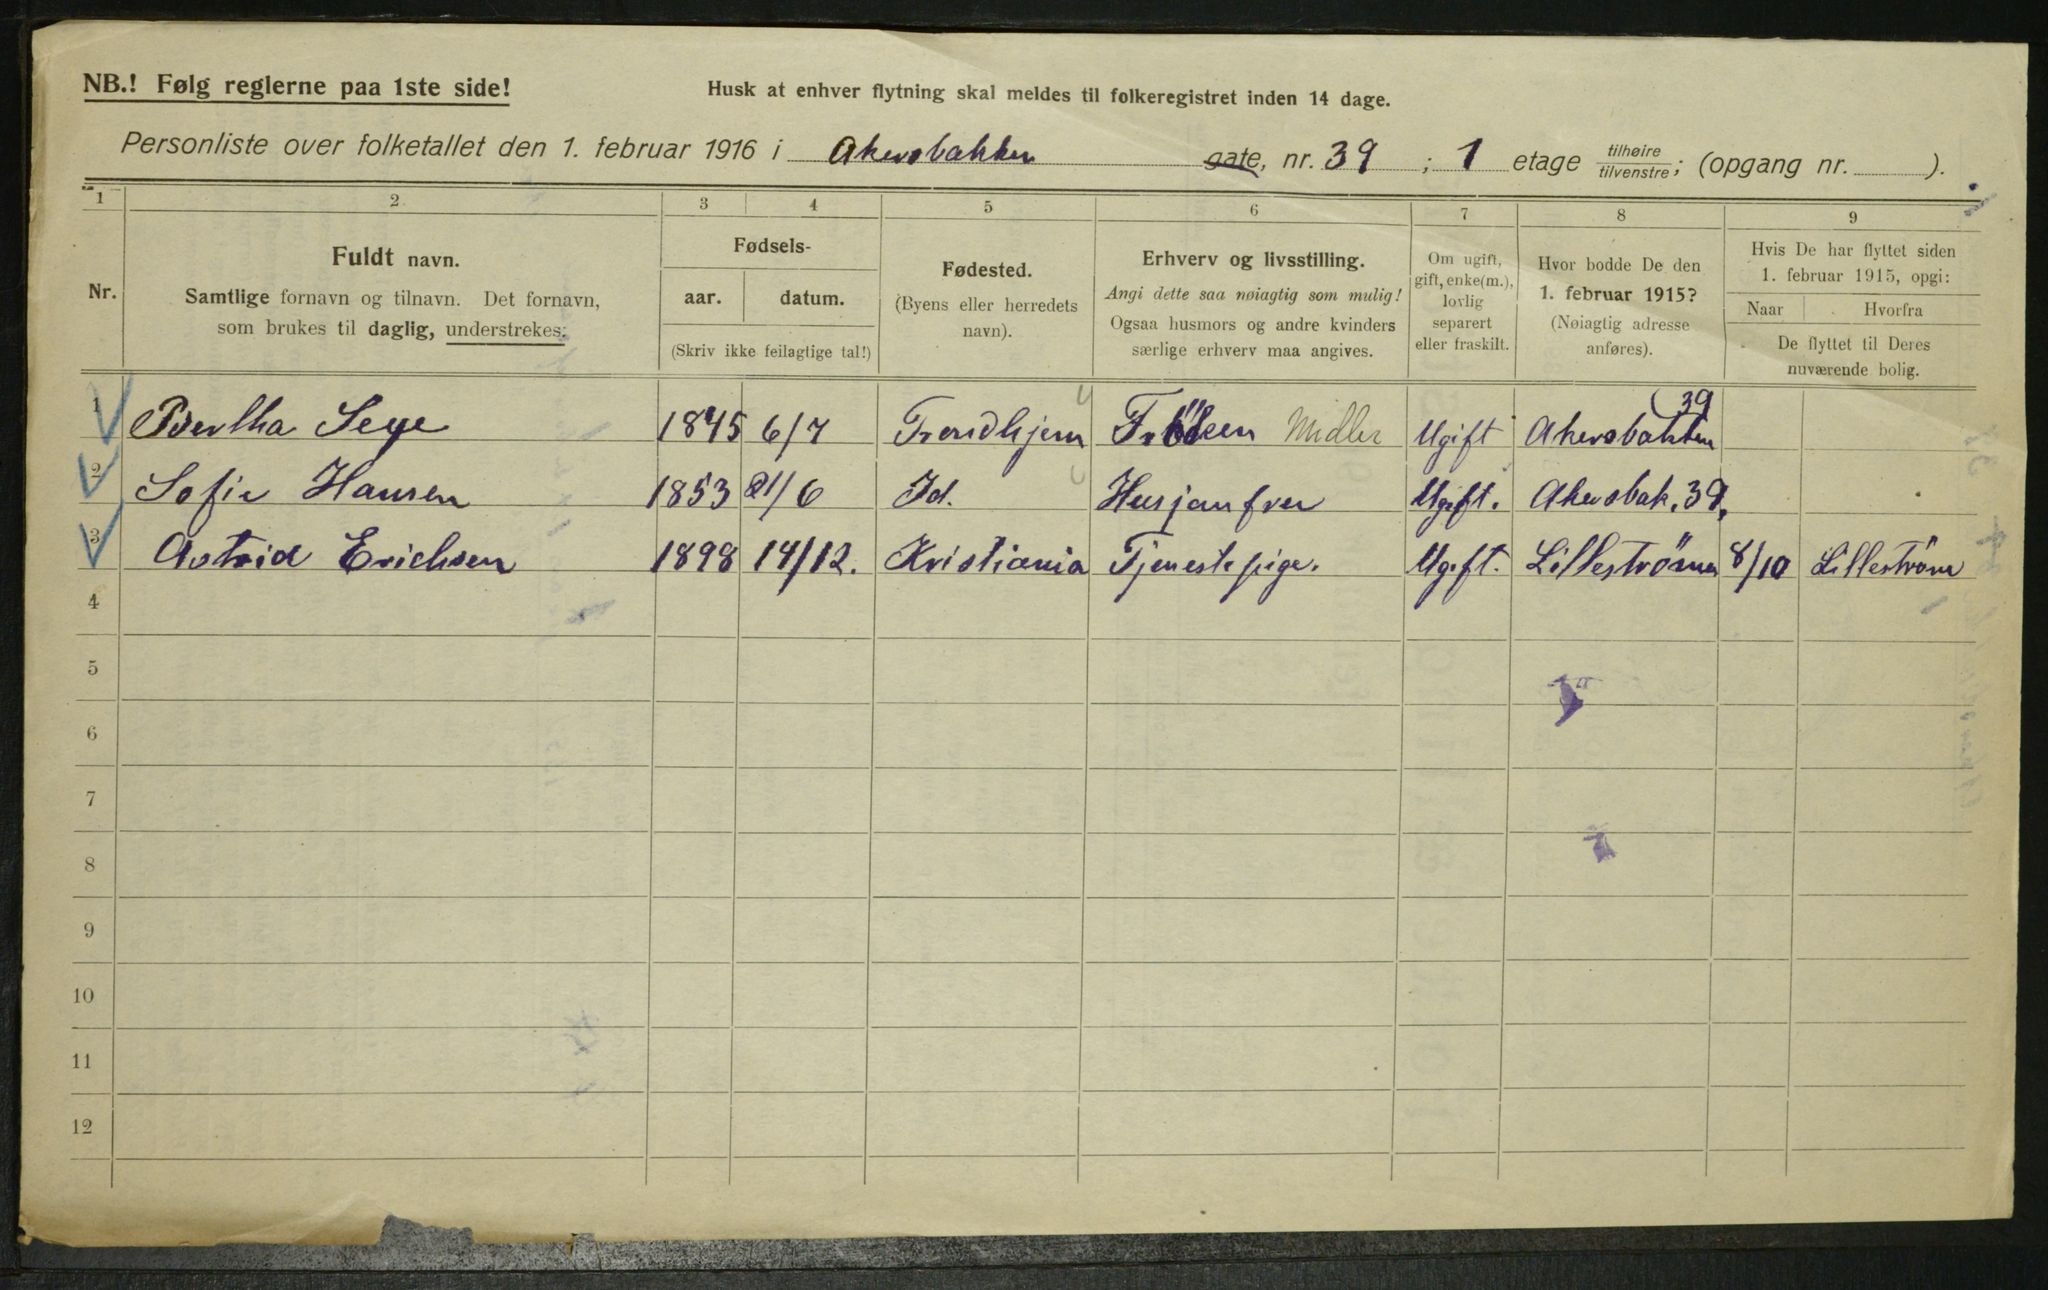 NB.! Følg reglerne paa 1ste side!
Husk at enhver flytning skal meldes til folkeregistret inden 14 dage.
Personliste over folketallet den 1. februar 1916 i Akersbakken gate, nr. 39 ; 1 etage tilhøire/tilvenstre; (opgang nr. ).
1 2 3 4 5 6 7 8 9
Nr.
Fuldt navn.
Samtlige fornavn og tilnavn. Det fornavn,
som brukes til daglig, understrekes:
Fødsels-
aar. datum.
(Skriv ikke feilagtige tal!)
Fødested.
(Byens eller herredets
navn).
Erhverv og livsstilling.
Angi dette saa nøiagtig som mulig!
Ogsaa husmors og andre kvinders
særlige erhverv maa angives.
Om ugift,
gift, enke(m.),
lovlig
separert
eller fraskilt.
Hvor bodde De den
1. februar 1915?
(Nøiagtig adresse
anføres).
Hvis De har flyttet siden
1. februar 1915, opgi:
Naar Hvorfra
De flyttet til Deres
nuværende bolig.
1 Bertha Seye 1845 6/7 Trondhjem Fröken Midler Ugift Akersbakken 39
2 Sofie Hansen 1853 21/6 Id. Husjomfru Ugift. Akersbak. 39,
3 Astrid Erichsen 1898 14/12. Kristiania Tjenestepige. Ugift. Lilleströmen 8/10 Lilleström
4
5
6
7
8
9
10
11
12